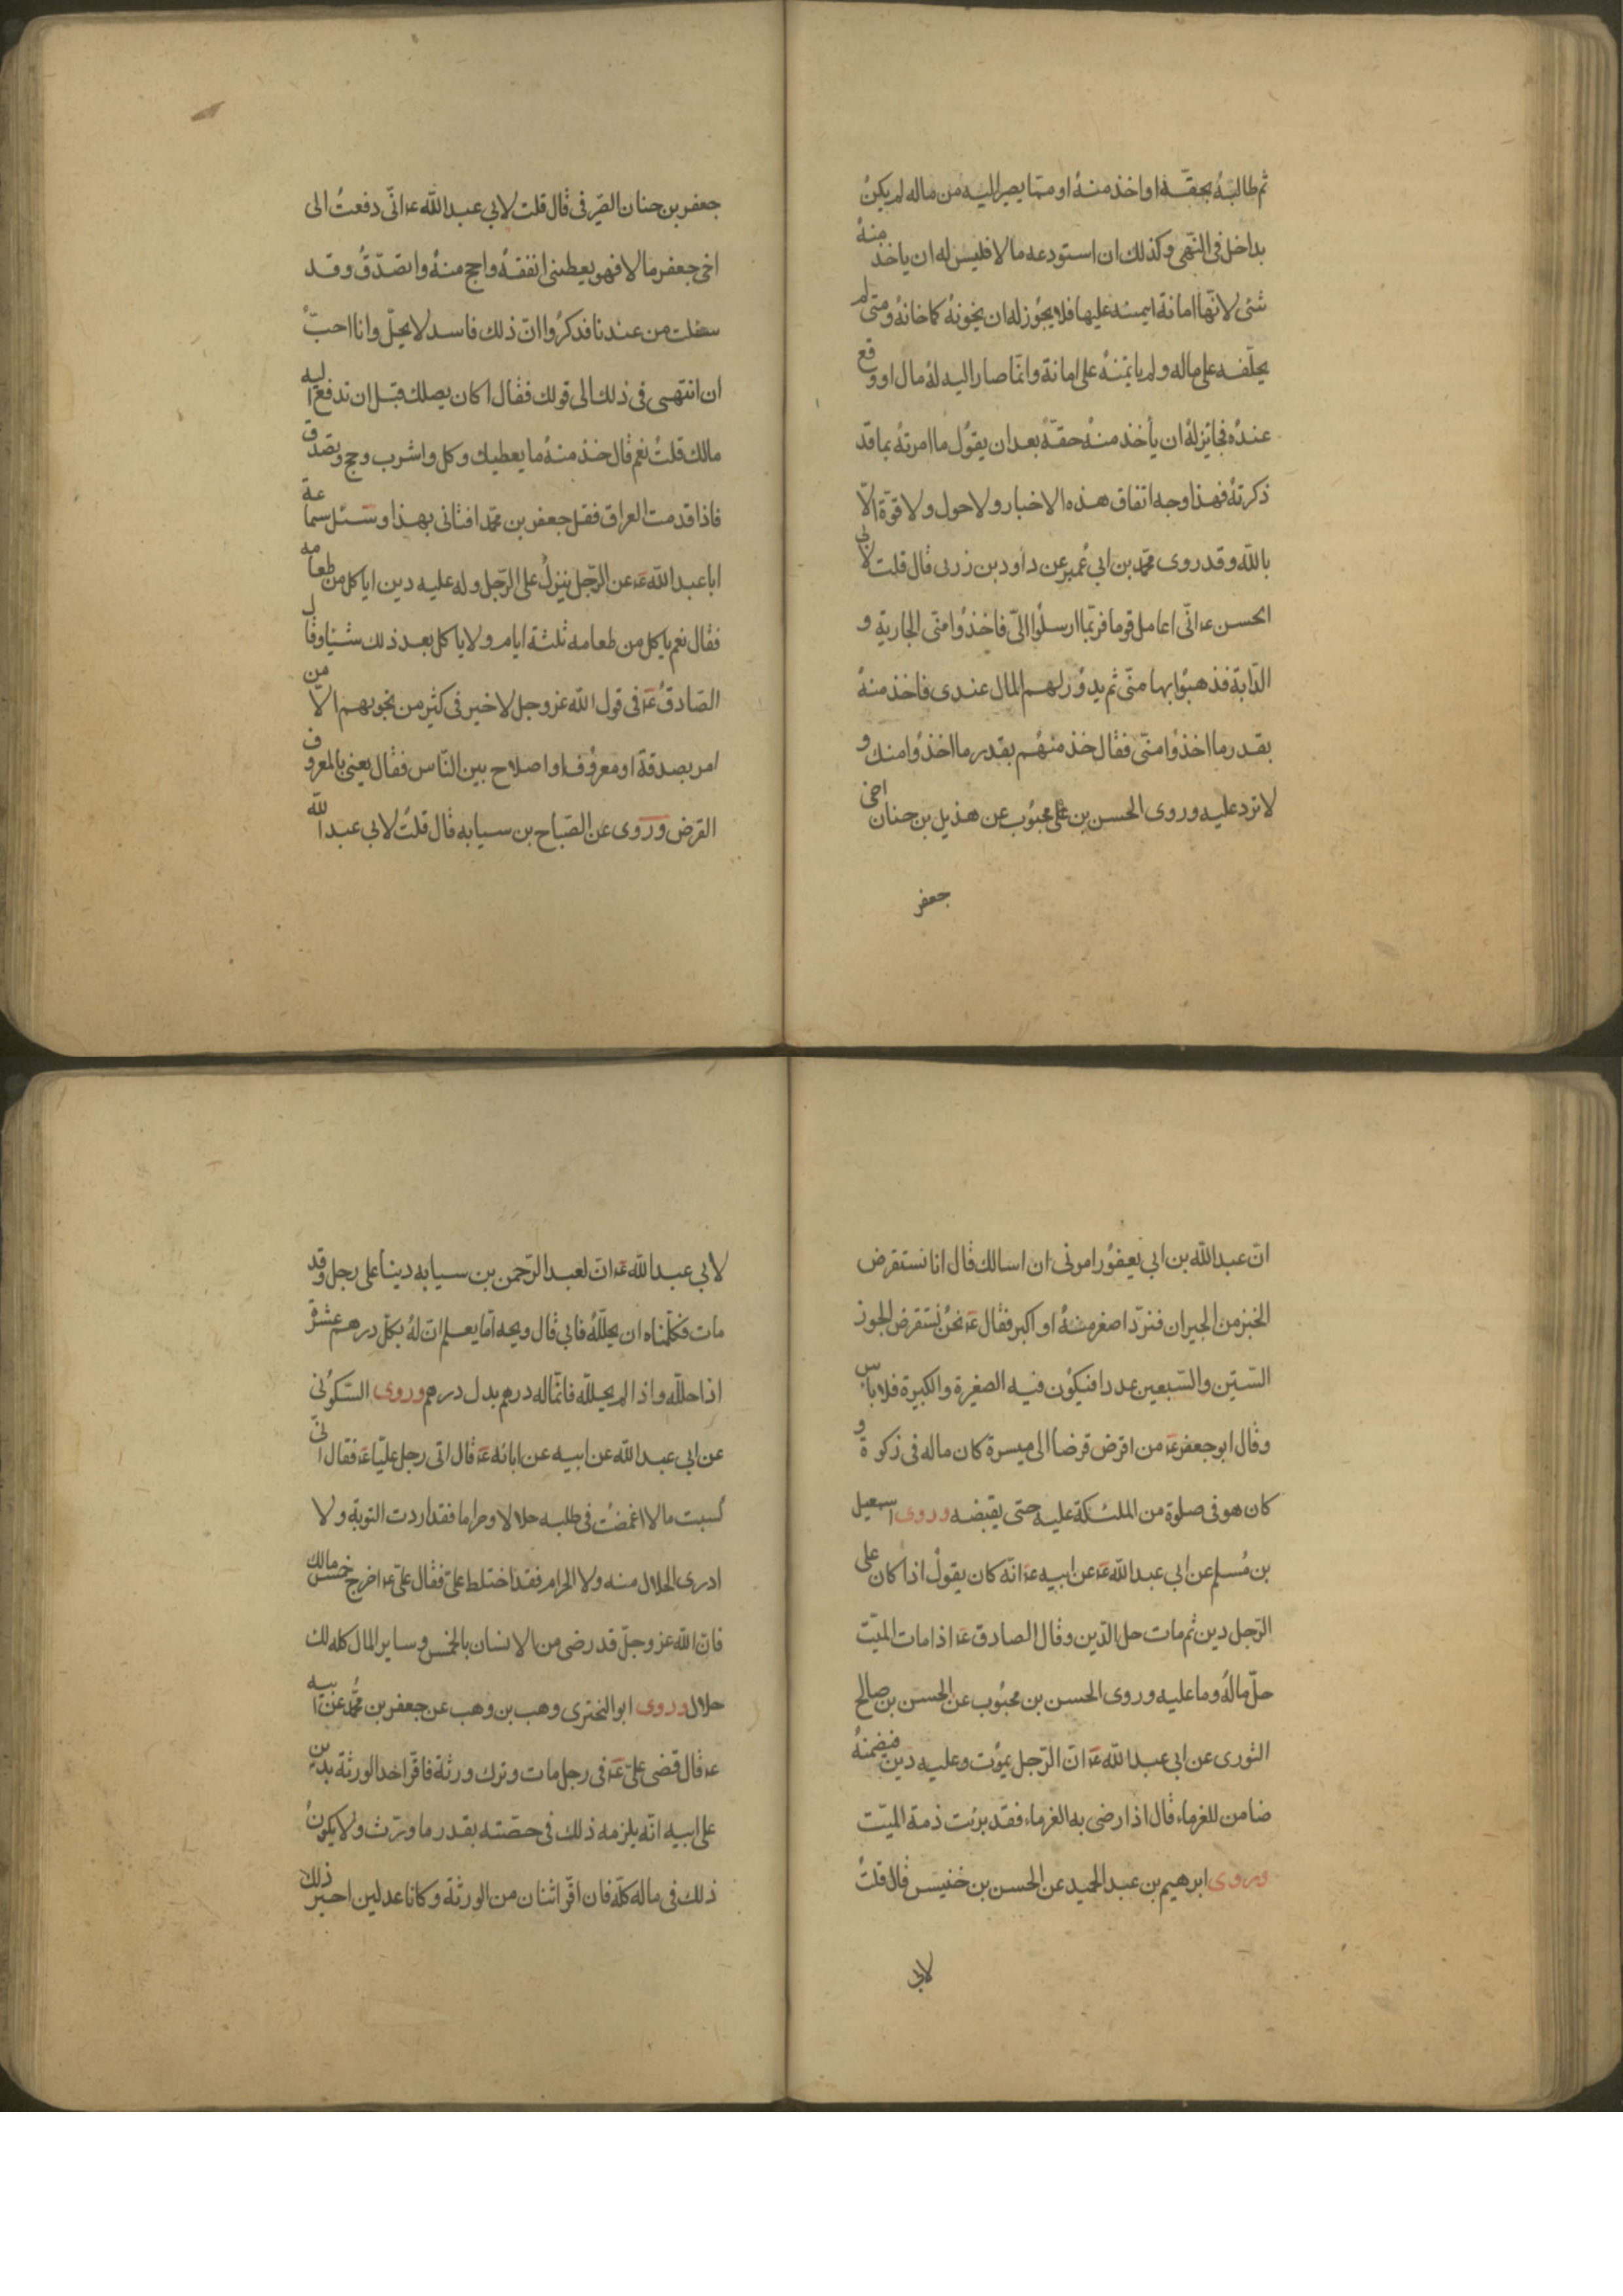 ثم طالبه بحقه او اخذ منه او مما يصير اليه من ماله لم يكن
بداخل فى النهى وكذلك ان استودعه مالا فليس له ان ياخذ منه
شئ لانها امانة ايمنه عليها فلا يجوز له ان يخونه كما خانه ومتى لم
يحلفه على ماله ولم ياتمنه على امانة وانما صار اليه له مال او وقع
عنده فجائز له ان يأخذ منه حقه بعد ان يقول ما امرته بما قد
ذكرته فهذا وجه اتفاق هذه الاخبار ولا حول ولا قوة الا
بالله وقد روى محمد بن ابي عمير عن داود بن زربى قال قلت لابى
الحسن ع انى اعامل قوما فربما ارسلوا الىّ فاخذوا منى الجارية و
الدابة فذهبوا بها منى ثم يدور لهم المال عندى فاخذ منه
بقدر ما اخذوا منى فقال خذ منهم بقدر ما اخذوا منك و
لا تزد عليه وروى الحسن بن محبوب عن هذيل بن حنان اخى
جعفر
جعفر بن حنان الصيرفى قال قلت لابي عبد الله ع انى دفعت الى
اخى جعفر مالا فهو يعطينى انفقه واحج منه واتصدق وقد
سئلت من عندنا فذكروا ان ذلك فاسد لا يحل وانا احب
ان انتهى فى ذلك الى قولك فقال اكان يصلك قبل ان تدفع اليه
مالك قلت نعم قال خذ منه ما يعطيك وكل واشرب وحج وتصدق
فاذا قدمت العراق فقل جعفر بن محمد افتانى بهذا وسئل سماعة
ابا عبد الله ع عن الرجل ينزل على الرجل وله عليه دين اياكل من طعامه
فقال نعم ياكل من طعامه ثلثة ايام ولا ياكل بعد ذلك شيئا وقال
الصادق ع فى قول الله عز وجل لا خير فى كثير من نجويهم الا من
امر بصدقة او معروف او اصلاح بين الناس فقال يعنى بالمعروف
القرض وروى عن الصباح بن سيابه قال قلت لابي عبد الله
ان عبد الله بن ابي يعفور امرنى ان اسالك قال انا نستقرض
الخبز من الجيران فنرد اصغر منه او اكبر فقال ع نحن نستقرض الجوز
الستين والسبعين عددا فيكون فيه الصغيرة والكبيرة فلا باس
وقال ابو جعفر ع من اقرض قرضا الى ميسرة كان ماله فى زكوة و
كان هو فى صلوة من الملئكة عليه حتى يقبضه وروى اسمعيل
بن مسلم عن ابي عبد الله ع عن ابيه ع انه كان يقول اذا كان على
الرجل دين ثم مات حل الدين وقال الصادق ع اذا مات الميت
حل ماله وما عليه وروى الحسن بن محبوب عن الحسن بن صالح
الثورى عن ابي عبد الله ع ان الرجل يموت وعليه دين فيضمنه
ضامن للغرماء قال اذا رضى به الغرماء فقد برئت ذمة الميت
وروى ابرهيم بن عبد الحميد عن الحسن بن خنيس قال قلت
لابي
لابي عبد الله ع ان لعبد الرحمن بن سيابه دينا على رجل وقد
مات فكلمناه ان يحلله فابي قال ويحه اما يعلم ان له بكل درهم عشرة
اذا حلله واذا لم يحلله فانما له درهم بدل درهم وروى السكونى
عن ابي عبد الله عن ابيه عن ابائه ع قال اتى رجل عليا ع فقال انى
كسبت مالا اغمضت فى طلبه حلالا وحراما فقد اردت التوبة ولا
ادرى الحلال منه ولا الحرام فقد اختلط علىّ فقال على ع اخرج خمس مالك
فان الله عز وجل قد رضى من الانسان بالخمس وساير المال كله لك
حلال وروى ابو البخترى وهب بن وهب عن جعفر بن محمد عن ابيه
ع قال قضى على ع فى رجل مات وترك ورثة فاقر احد الورثة بدين
على ابيه انه يلزمه ذلك فى حصته بقدر ما ورث ولا يكون
ذلك فى ماله كله فان اقر اثنان من الورثة وكانا عدلين اجيز ذلك